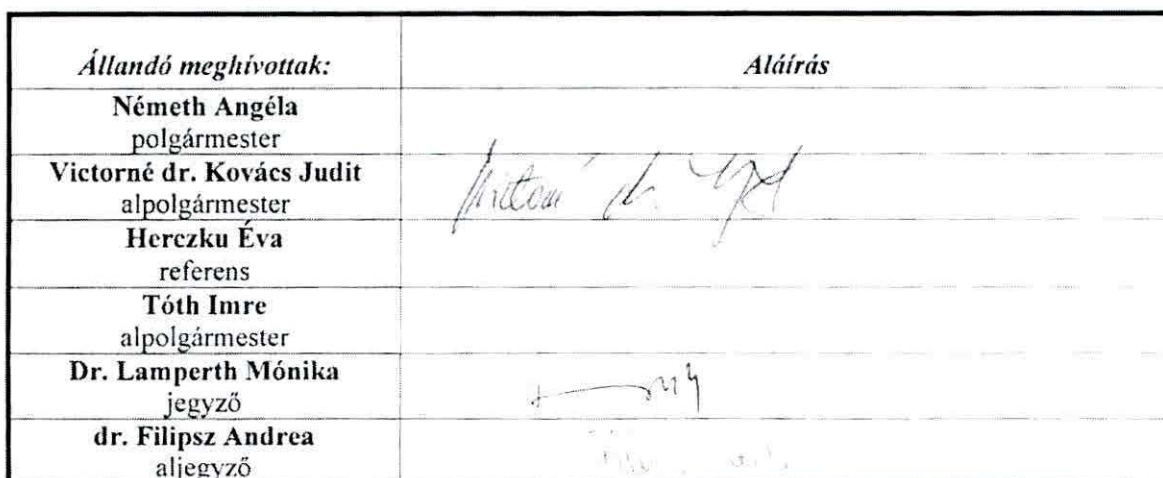 Állandó meghívottak: Aláírás
Németh Angéla
polgármester
Victorné dr. Kovács Judit
alpolgármester
Herczku Éva
referens
Tóth Imre
alpolgármester
Dr. Lamperth Mónika
jegyző
dr. Filipsz Andrea
aljegyző